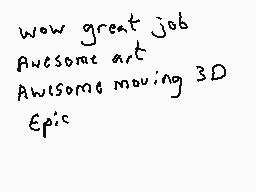 wow great job
Awesome art
Awesome moving 3D
Epic